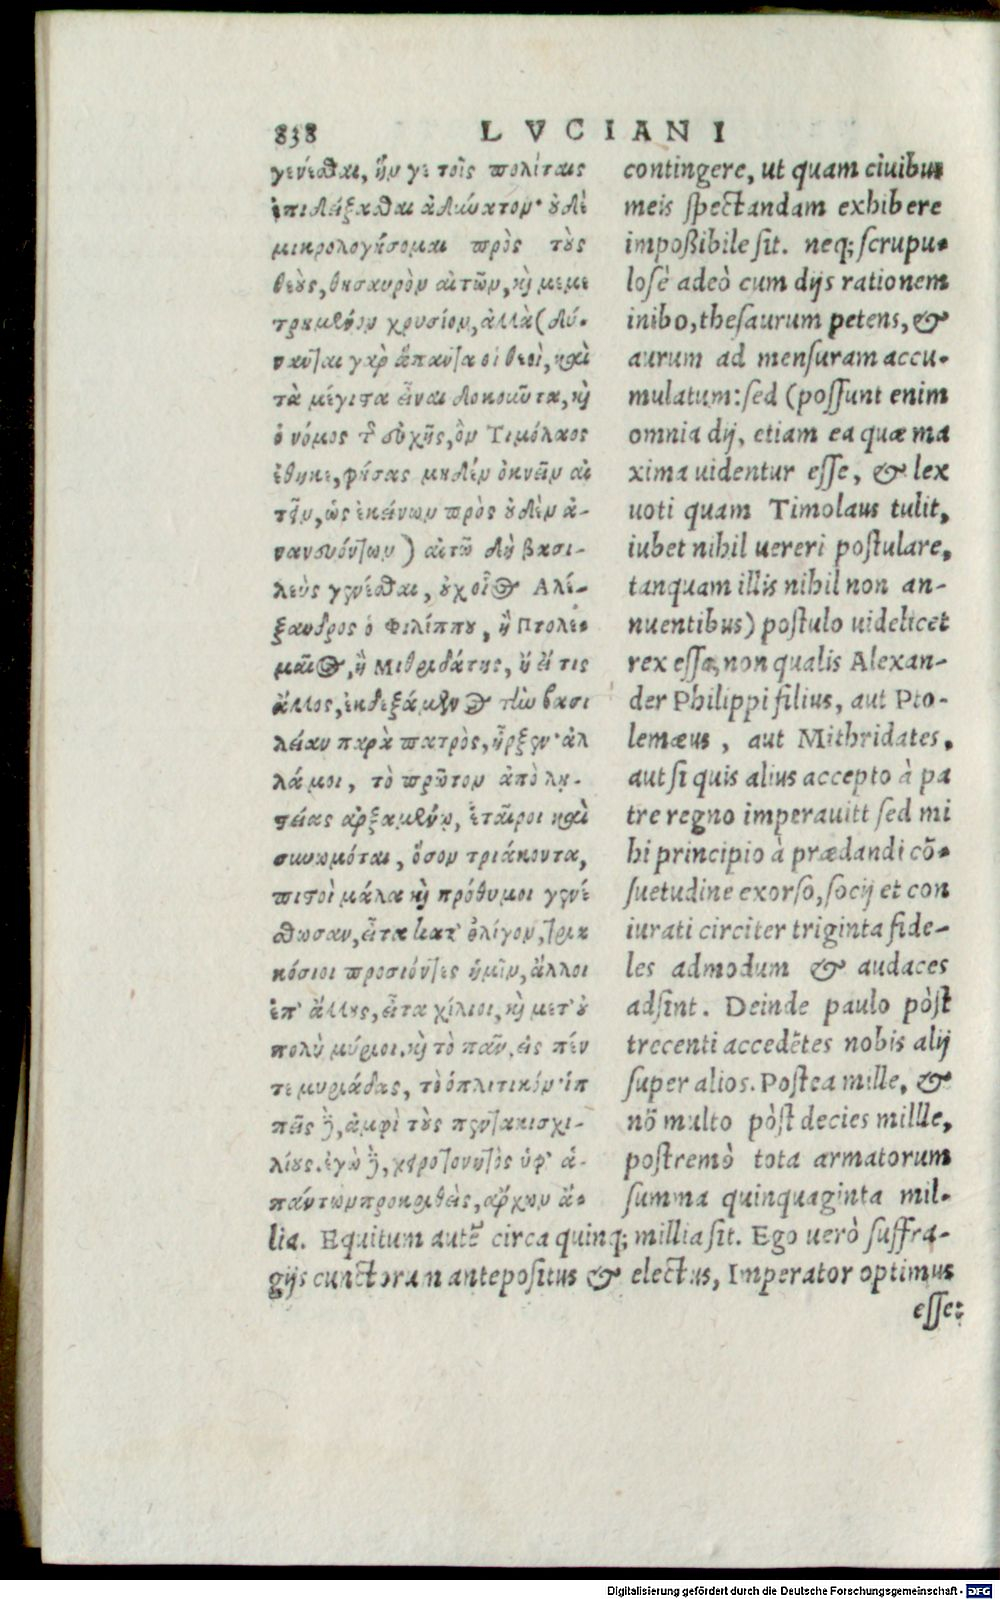 838 LVCIANI
γενέσθαι, ἥν γε τοῖς πολίταις
ἐπιδείξασθαι ἀδύνατον· οὐδὲ
μικρολογήσομαι πρὸς τοὺς
θεοὺς, θησαυρὸν αἰτῶν, καὶ μεμε
τρημένον χρυσίον, ἀλλὰ (δύ-
νανται γὰρ ἅπαντα οἱ θεοὶ, καὶ
τὰ μέγιστα εἶναι δοκοῦντα, καὶ
ὁ νόμος τῆς εὐχῆς, ὃν Τιμόλαος
ἔθηκε, φήσας μηδὲν ὀκνεῖν αἰ
τεῖν, ὡς ἐκείνων πρὸς οὐδὲν ἀ-
νανευόντων) αἰτῶ δὴ βασι-
λεὺς γενέσθαι, οὐχ οἷος Αλέ-
ξανδρος ὁ Φιλίππου, ἢ Πτολε-
μαῖος, ἢ Μιθριδάτης, ἢ εἴ τις
ἄλλος, ἐκδεξάμενος τὴν βασι
λείαν παρὰ πατρὸς, ἦρξεν· ἀλ
λά μοι, τὸ πρῶτον ἀπὸ λῃ-
στείας ἀρξαμένῳ, ἑταῖροι καὶ
συνωμόται, ὅσον τριάκοντα,
πιστοὶ μάλα καὶ πρόθυμοι γενέ
σθωσαν, εἶτα κατ' ὀλίγον, τρια
κόσιοι προσιόντες ἡμῖν, ἄλλοι
ἐπ' ἄλλοις, εἶτα χίλιοι, καὶ μετ' οὐ
πολὺ μύριοι. καὶ τὸ πᾶν, εἰς πέν
τε μυριάδας, τὸ ὁπλιτικόν· ἱπ
πεῖς δὲ, ἀμφὶ τοὺς πεντακισχι-
λίους. ἐγὼ δὲ, χειροτονητὸς ὑφ' ἁ-
πάντων προκριθεὶς, ἄρχων ἄ-
contingere, ut quam ciuibus
meis spectandam exhibere
impoßibile sit. neq; scrupu-
losè adeò cum dijs rationem
inibo, thesaurum petens, &
aurum ad mensuram accu-
mulatum: sed (possunt enim
omnia dij, etiam ea quæ ma
xima uidentur esse, & lex
uoti quam Timolaus tulit,
iubet nihil uereri postulare,
tanquam illis nihil non an-
nuentibus) postulo uidelicet
rex esse, non qualis Alexan-
der Philippi filius, aut Pto-
lemæus, aut Mithridates,
aut si quis alius accepto à pa
tre regno imperauitt sed mi
hi principio à prædandi cõ-
suetudine exorso, socij et con
iurati circiter triginta fide-
les admodum & audaces
adsint. Deinde paulo pòst
trecenti accedẽtes nobis alij
super alios. Postea mille, &
nõ multo pòst decies millle,
postremò tota armatorum
summa quinquaginta mil-
lia. Equitum autẽ circa quinq; millia sit. Ego uerò suffra-
gijs cunctorum antepositus & electus, Imperator optimus
esse:
Digitalisierung gefördert durch die Deutsche Forschungsgemeinschaft - DFG